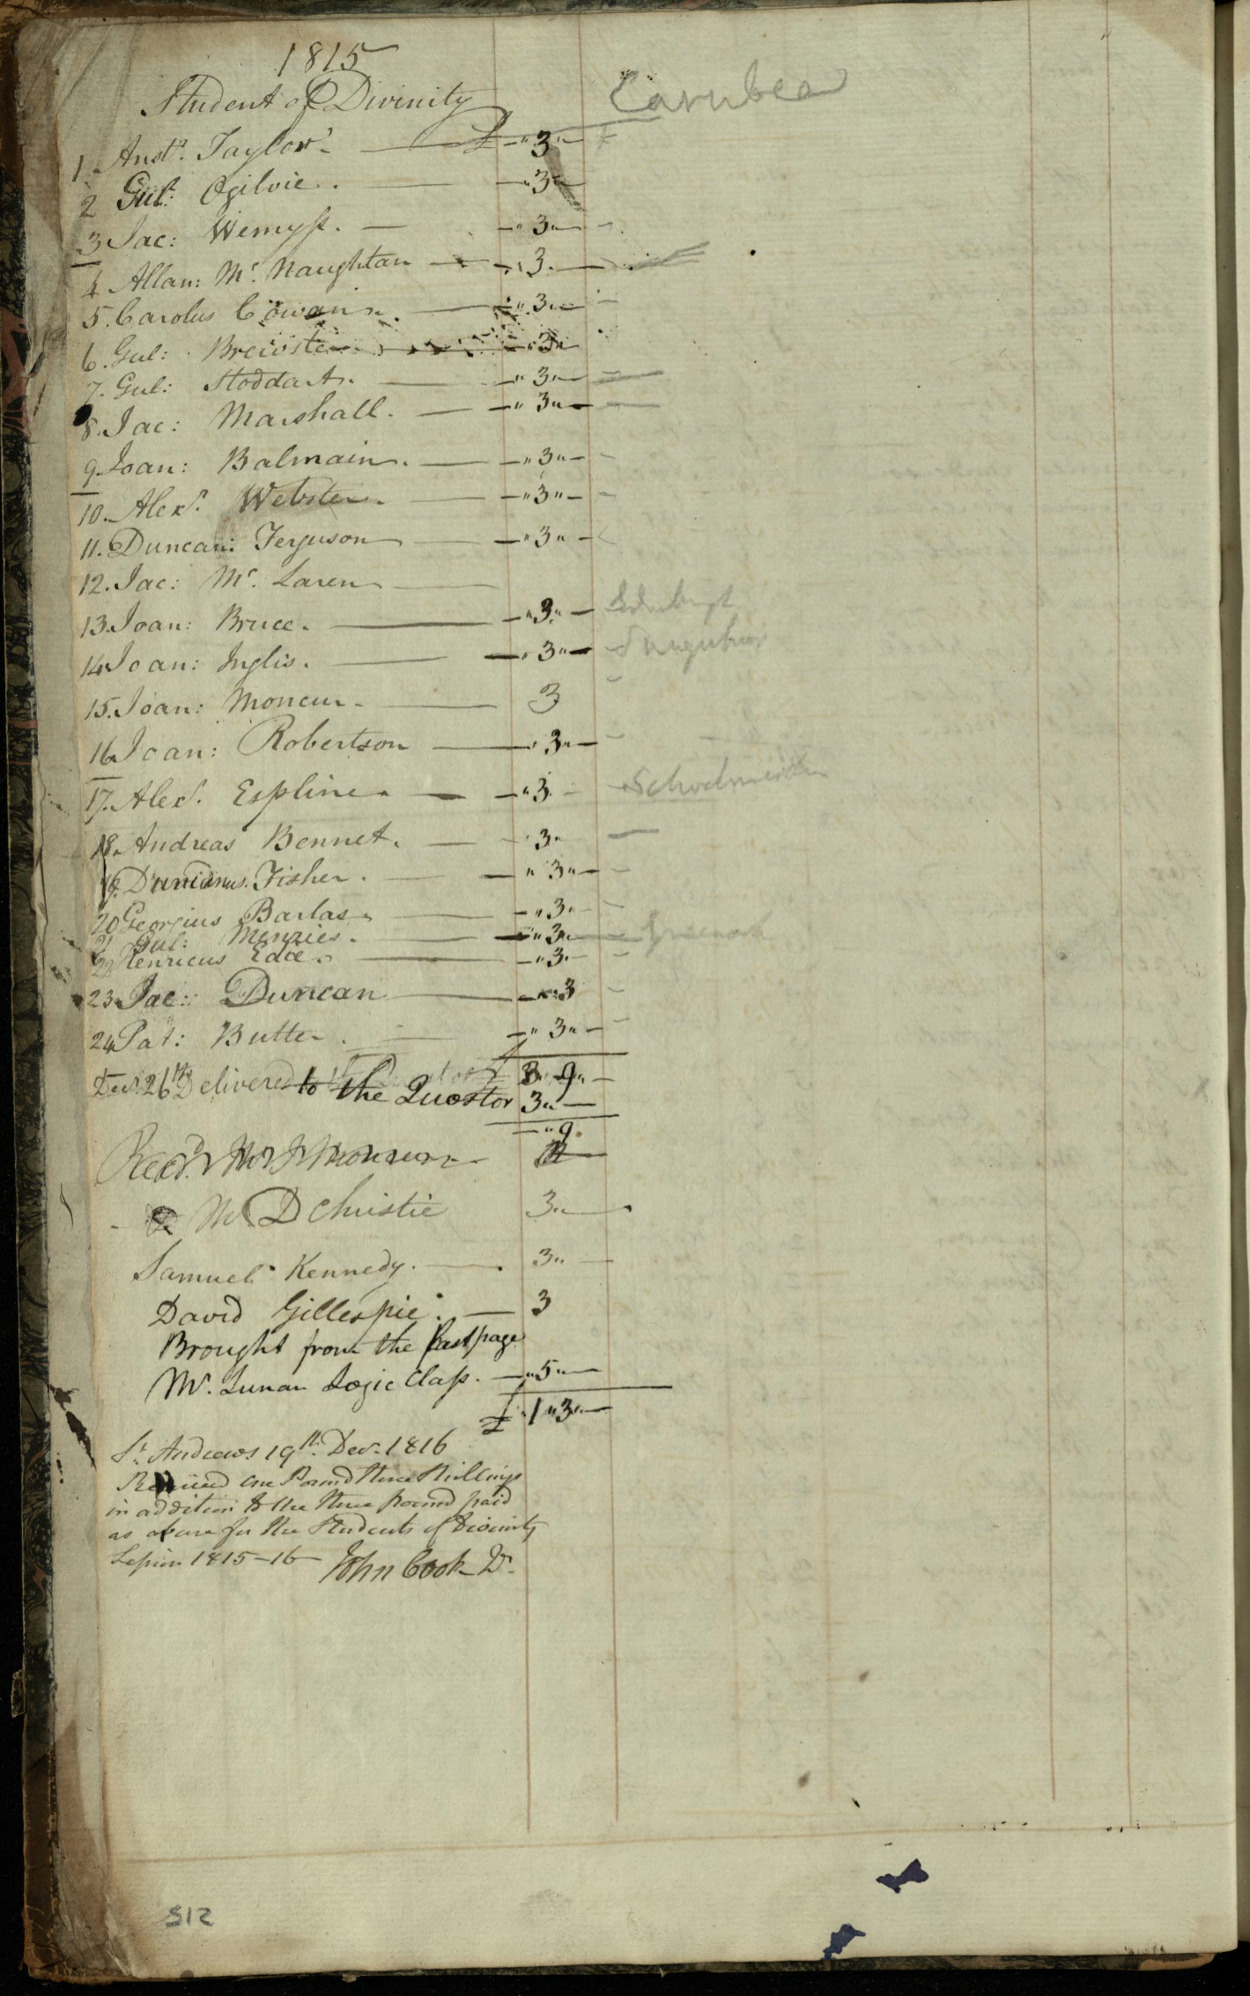 1815
Student of Divinity
1. Anst. Taylor. £ - " 3 " -
2 Gul: Ogilvie. - " 3 -
3 Jac: Wemyss. - " 3 " -
4 Allan: Mc. Naughtan - " 3. -
5. Carolus Cowan. - " 3 " -
6. Gul: Brewster. - " 3 " -
7. Gul: Stoddart. - " 3 " -
8. Jac: Marshall. - " 3 " -
9. Joan: Balmain. - " 3 " -
10. Alexr. Webster. - " 3 " -
11. Duncan: Ferguson - " 3 " -
12. Jac: Mc. Laren
13. Joan: Bruce. - " 3 " - Edinburgh
14 Joan: Inglis. - " 3 " -
15. Joan: Moncur. 3
16. Joan: Robertson - " 3 " -
17. Alexr. Espline. - " 3 - Schoolmaster
18. Andreas Bennet. - " 3 "
19. Duncanus. Fisher. - " 3 " -
20 Georgius Barlas. - " 3 " -
21 Gul: Menzies. - " 3 " - Greenock
22 Henricus Edie. - " 3 " -
23. Jac: Duncan - " " 3
24 Pat: Butter. - " 3 " -
£ 3 " 9 " -
Decr. 26th. Delivered to the Quæstor 3 " -
- " 9.
Recd. Mr J Moncur
Mr D Christie 3 " -
Samuel Kennedy. 3 " -
David Gillespie. 3
Brought from the last page
Mr. Lunan Logic Class. - " 5 " -
£ 1 " 3 " -
St. Andrews 19th. Decr. 1816
Received one Pound three Shillings
in addition to the three pound paid
as above for the Students of Divinity
Session 1815-16 John Cook Qr.
512